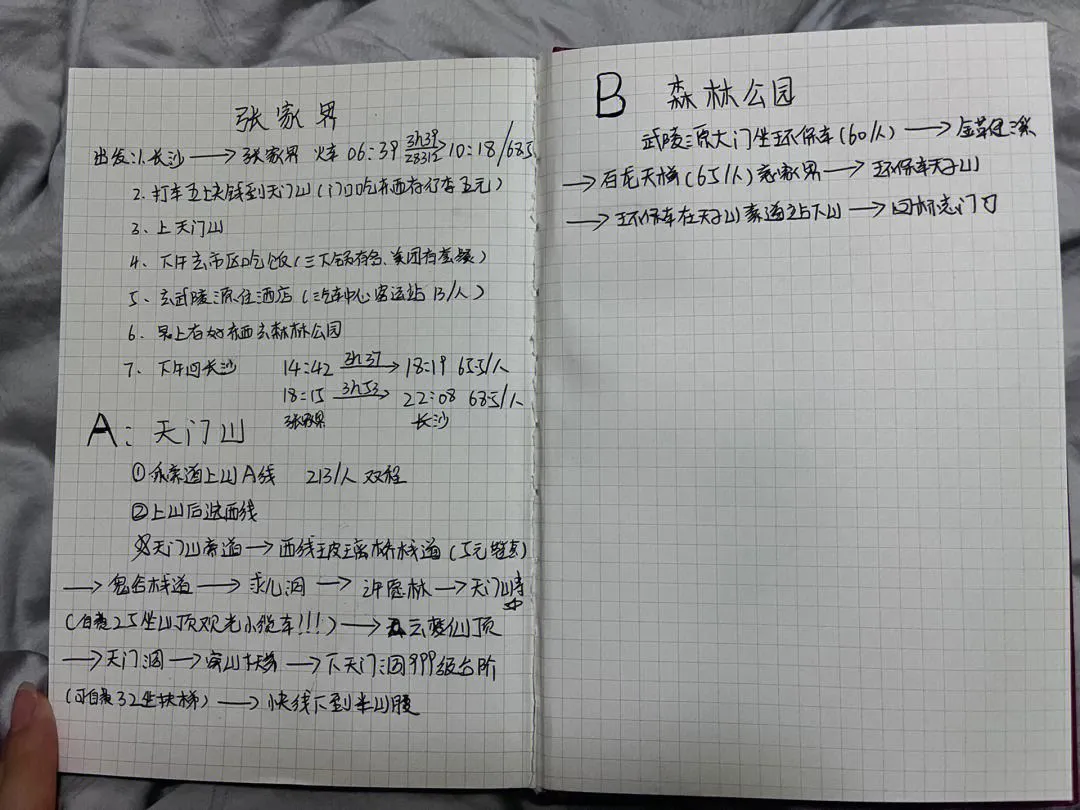 张家界
出发:1.长沙 → 张家界 火车 06:39 3h39 10:18/68.5
2. 打车五块钱到天门山(门口吃东西存行李五元)
3. 上天门山
4、下午去市区吃饭(三下锅有名、美团有套餐)
5、去武陵源住酒店(汽车中心客运站 13/人)
6、早上存好东西去森林公园
7、下午回长沙 14:42 3h37→ 18:19 65.5/人
18:15 3h53→ 22:08 68.5/人
张家界 长沙
A:天门山
①乘索道上山A线 213/人 双程
②上山后选西线
天门山索道→西线玻璃桥栈道(5元鞋套)
→鬼谷栈道→求儿洞→许愿林→天门山寺
(自费25坐山顶观光小缆车!!!)→云梦仙顶
→天门洞→穿山扶梯→下天门洞999级台阶
(可自费32坐扶梯)→快线下到半山腰
B 森林公园
武陵源大门坐环保车(60/人)→金鞭溪
→百龙天梯(65/人)袁家界→环保车天子山
→环保车在天子山索道站下山→回标志门口